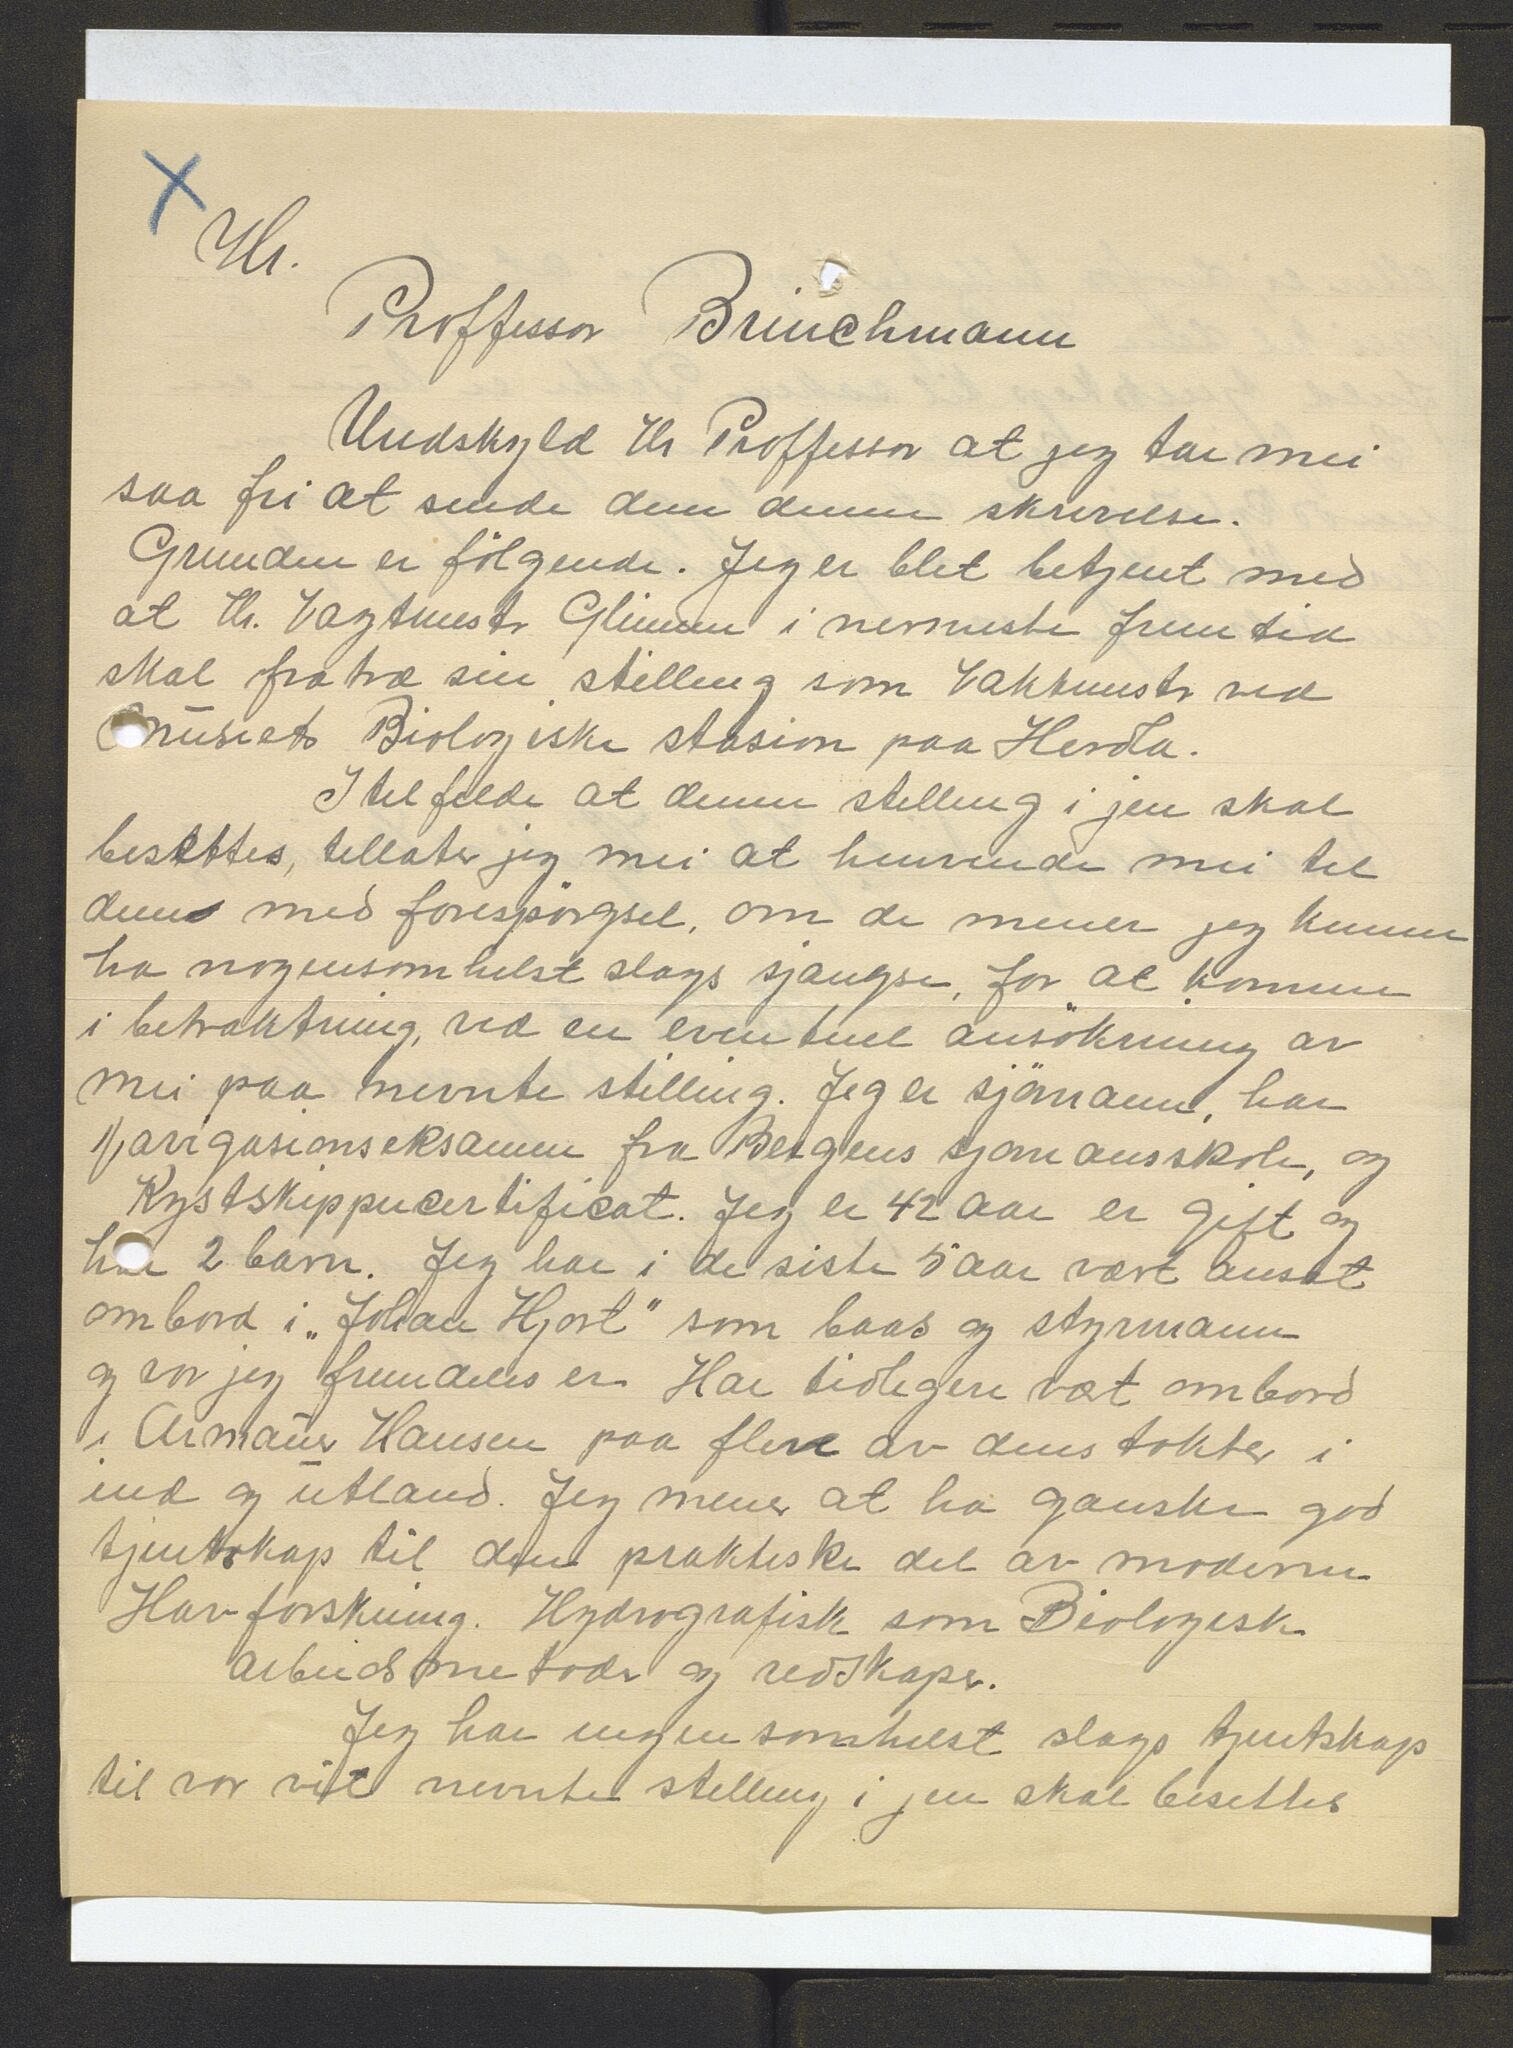 Hr.
Proffessor Brinchmann
Undskyld Hr Proffessor at jeg tar mei
saa fri at sende dem denne skrivelse.
Grunden er fölgende. Jeg er blet betjent med
at Hr. Vagtmestr Glimme i nermeste fremtid
skal fratræ sin stilling som Vaktmestr ved
Museets Biologiske stasion paa Herdla.
I tilfelde at denne stilling i jen skal
besettes, tellater jeg mei at henvende mei til
dem med forespörgsel, om de mener jeg kunne
ha nogensomhelst slags sjangse, for at komme
i betraktning, ved en eventuel ansökning av
mei paa nevnte stilling. Jeg er sjömann, har
Navigasionseksamen fra Bergens sjömansskole, og
Kystskippercertificat. Jeg er 42 aar er gift og
har 2 barn. Jeg har i de siste 5 aar vært ansat
ombord i „Johan Hjort" som baas og styrmann
og vor jeg fremdeles er. Har tidligere vært ombord
i Armauer Hansen paa flere av dens tokter i
ind og utland. Jeg mener at ha ganske god
tjentskap til den praktiske del av moderne
Havforskning. Hydrografisk som Biologisk
arbeidsmetoder og redskaper.
Jeg har ingensomhelst slags tjentskap
til vor vit nevnte stilling i jen skal besettes